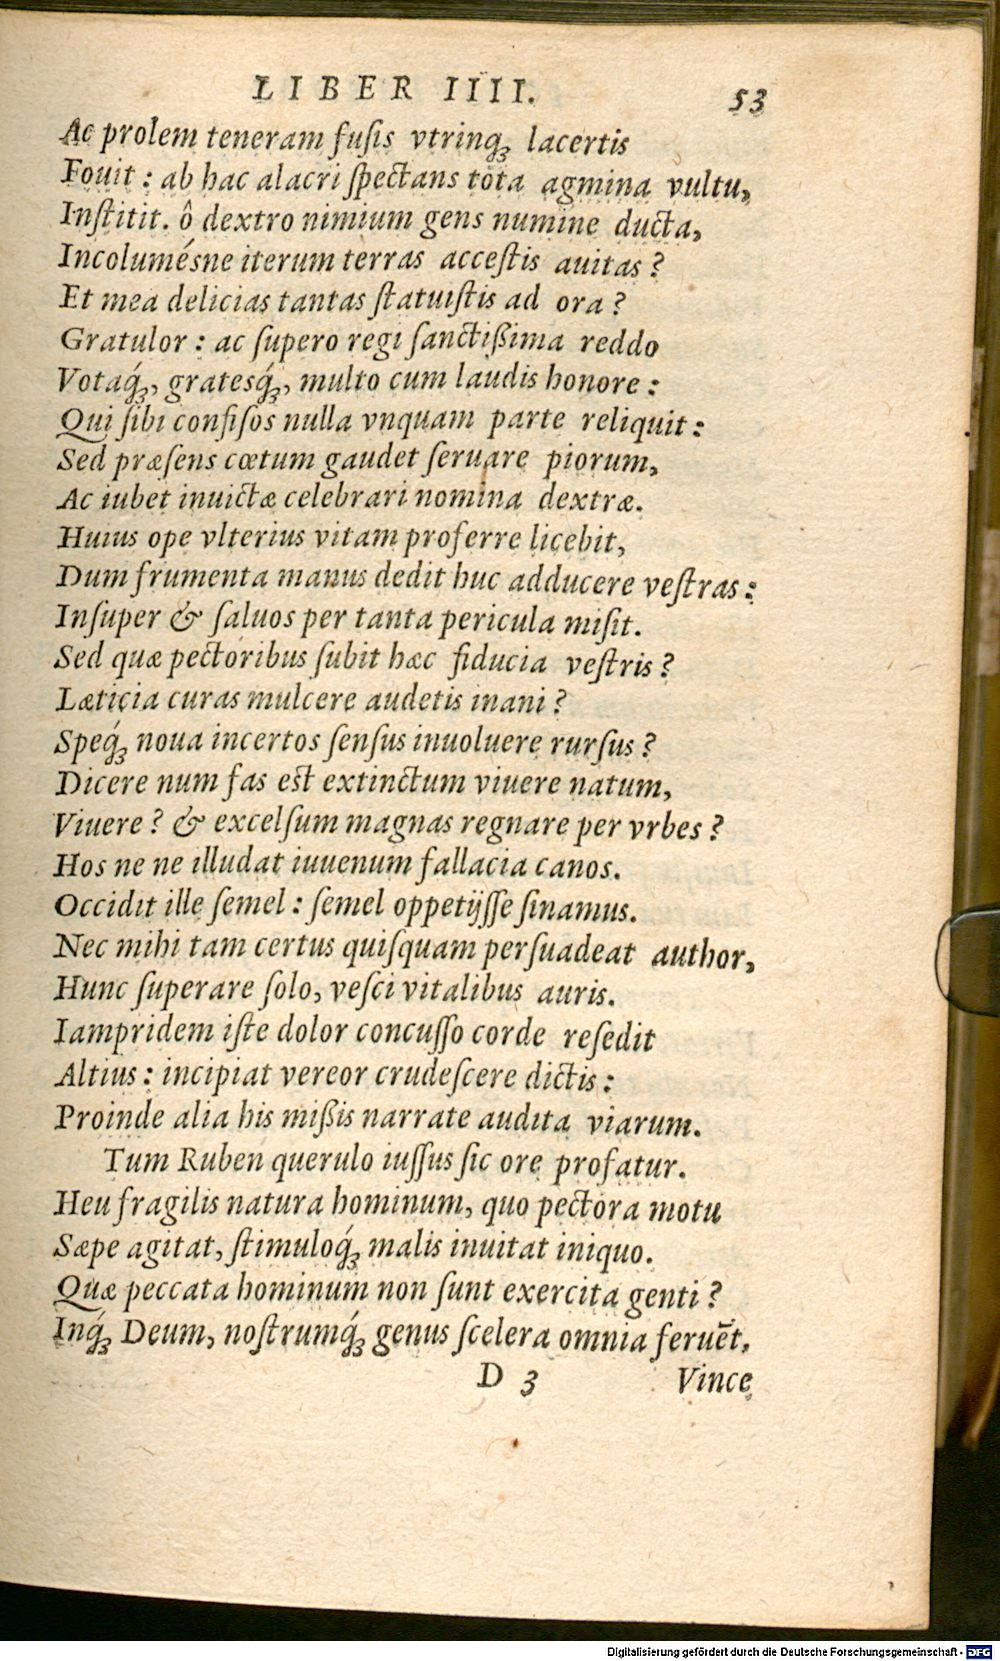 LIBER IIII. 53
Ac prolem teneram fuſis vtrinq; lacertis
Fouit : ab hac alacri ſpectans tota agmina vultu,
Inſtitit. ô dextro nimium gens numine ducta,
Incolumésne iterum terras acceſtis auitas ?
Et mea delicias tantas ſtatuiſtis ad ora ?
Gratulor : ac ſupero regi ſanctißima reddo
Votaq́;, gratesq́;, multo cum laudis honore :
Qui ſibi confiſos nulla vnquam parte reliquit :
Sed præſens cœtum gaudet ſeruare piorum,
Ac iubet inuictæ celebrari nomina dextræ.
Huius ope vlterius vitam proferre licebit,
Dum frumenta manus dedit huc adducere veſtras :
Inſuper & ſaluos per tanta pericula miſit.
Sed quæ pectoribus ſubit hæc fiducia veſtris ?
Læticia curas mulcere audetis inani ?
Speq́; noua incertos ſenſus inuoluere rurſus ?
Dicere num fas est extinctum viuere natum,
Viuere ? & excelſum magnas regnare per vrbes ?
Hos ne ne illudat iuuenum fallacia canos.
Occidit ille ſemel : ſemel oppetijſſe ſinamus.
Nec mihi tam certus quiſquam perſuadeat author,
Hunc ſuperare ſolo, veſci vitalibus auris.
Iampridem iſte dolor concuſſo corde reſedit
Altius : incipiat vereor crudeſcere dictis :
Proinde alia his mißis narrate audita viarum.
Tum Ruben querulo iuſſus ſic ore profatur.
Heu fragilis natura hominum, quo pectora motu
Sæpe agitat, ſtimuloq́; malis inuitat iniquo.
Quæ peccata hominum non ſunt exercita genti ?
Inq́; Deum, noſtrumq́; genus ſcelera omnia feruēt,
D 3 Vince
Digitalisierung gefördert durch die Deutsche Forschungsgemeinschaft - DFG